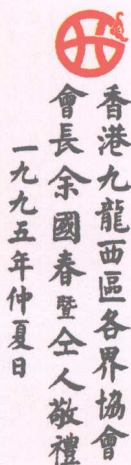 香港九龍西區各界協會
會長余國春暨仝人敬禮
一九九五年仲夏日